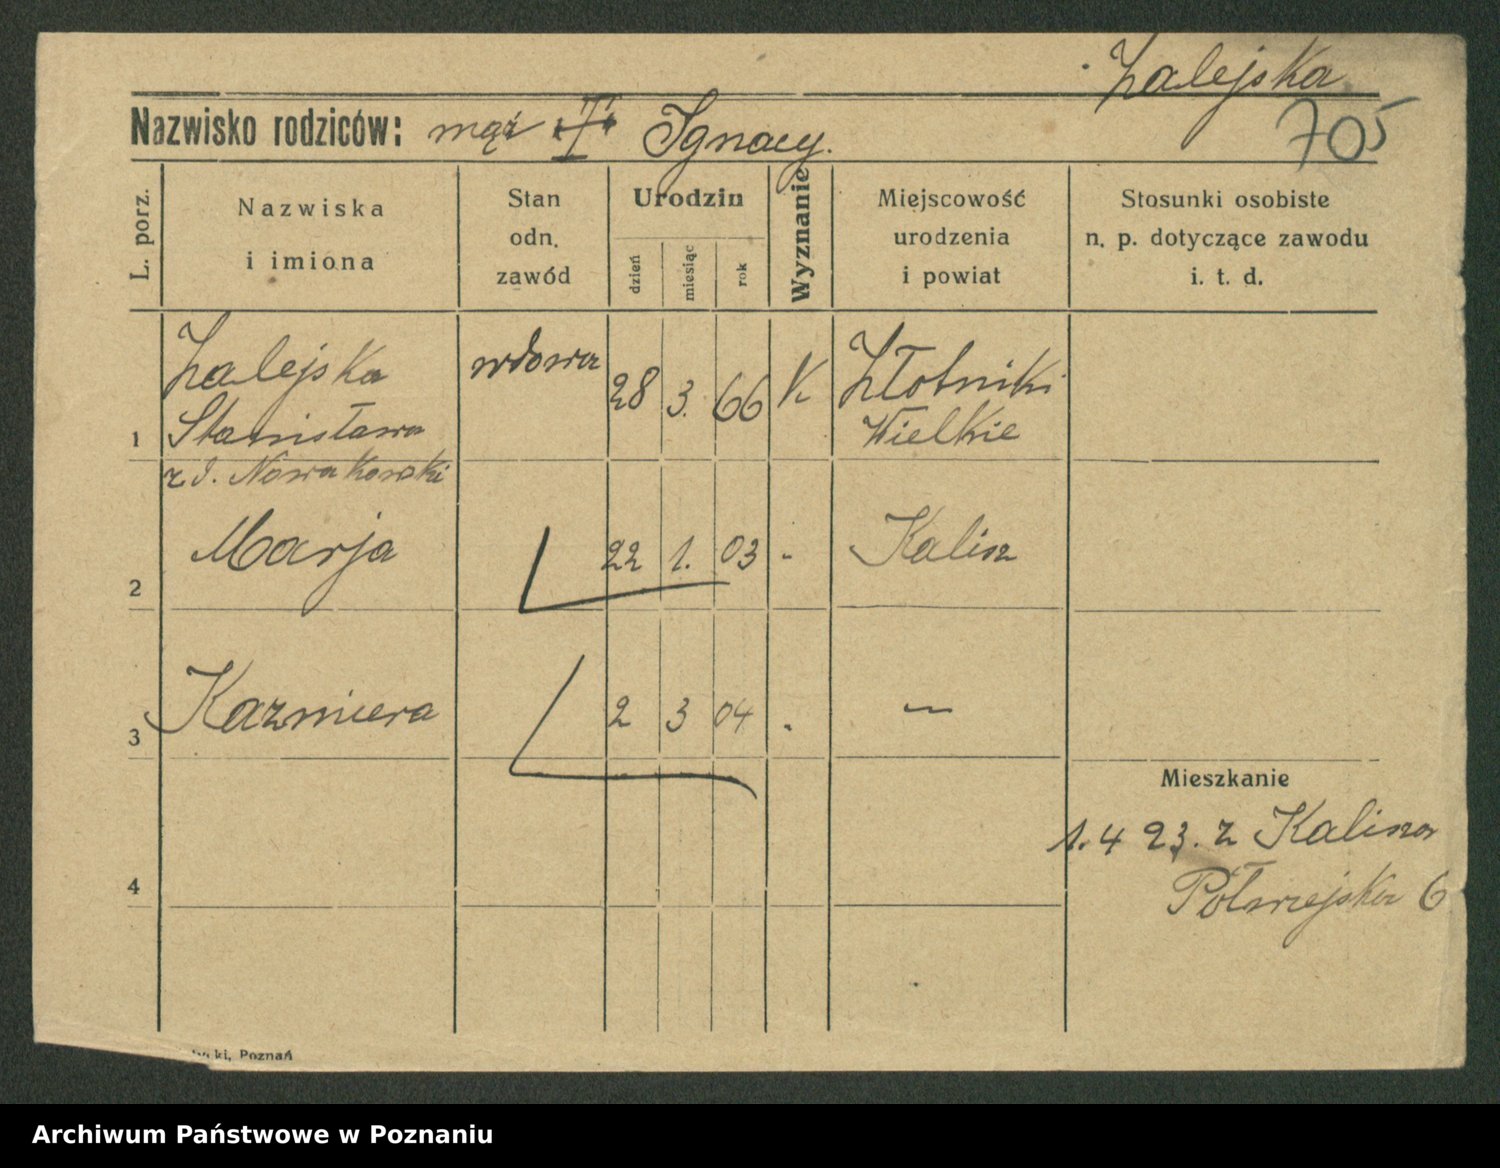 Zalejska
Nazwisko rodziców: mąż Ignacy.
705
L. porz.
Nazwiska
i imiona
Stan
odn.
zawód
Urodzin
dzień
miesiąc
rok
Wyznanie
Miejscowość
urodzenia
i powiat
Stosunki osobiste
n. p. dotyczące zawodu
i. t. d.
1
Zalejska
Stanisława
z d. Nowakowski
wdowa
28 3. 66
K
Złotniki
Wielkie
2
Marja
22 1. 03 "
Kalisz
3
Kazmiera
2 3 04 "
—
Mieszkanie
1. 4 23. z Kalisza
Półwiejska 6
4
ki, Poznań
Archiwum Państwowe w Poznaniu